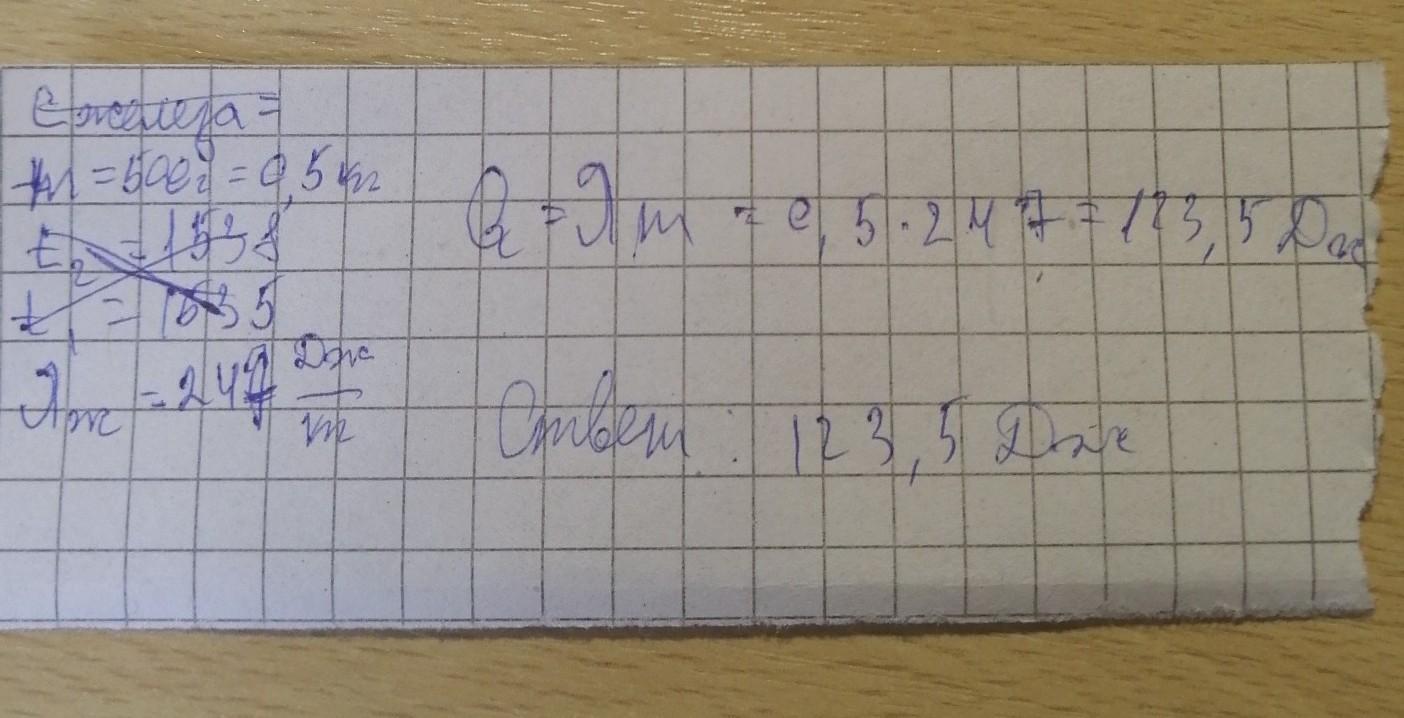 C железа =
m = 500г = 0,5 кг
t₂ = 1538
t₁ = 1535
λж = 247 Дж/кг
Q = λm = 0,5 · 247 = 123,5 Дж
Ответ: 123,5 Дж